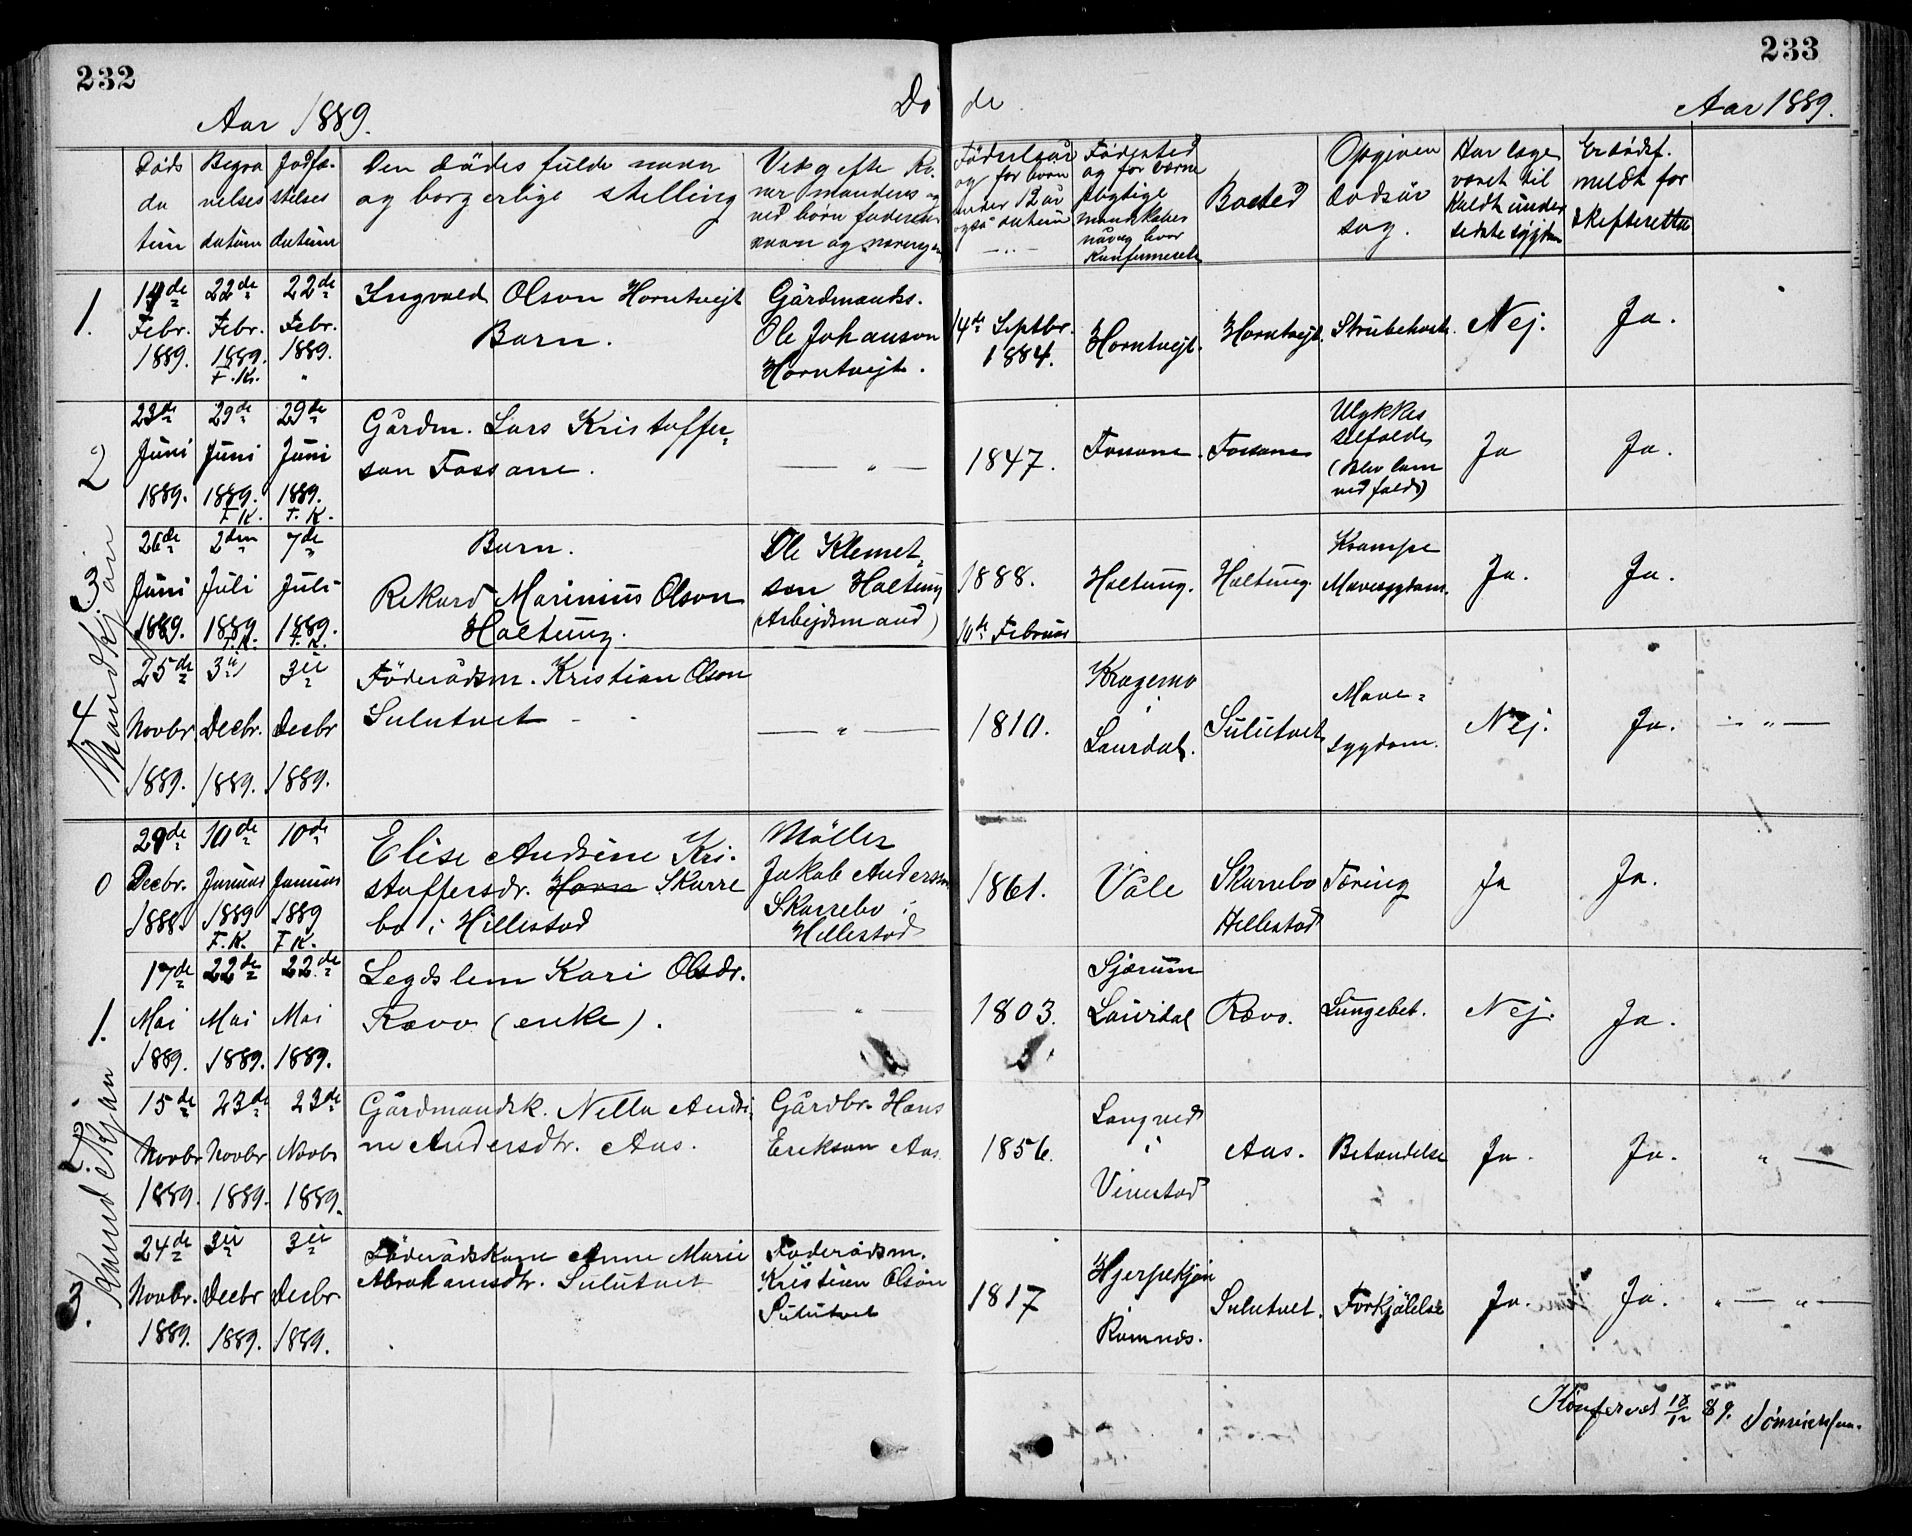 232
233
Aar 1889.
Dø de
Aar 1889.
Døds da tum
Begra velses datum
Jordfæ stelses datum
Den dødes fulde navn og borgerlige stilling
og for børn under 12 år også datum
Fødested og for værne pligtige mandskaber
Bosted
Opgiven dødsår sag.
Har læge været til kaldt under sidste sygdom
Er dødsf. meldt for skifteretten
Mandkjøn
1.
19de Febr. 1889.
22de Febr. 1889. F. K.
22de Febr. 1889. "
Ingvald Olson Horntvejt
Barn.
Gårdmands. Ole Johanson Horntvejt.
14de Septbr. 1884.
Horntvejt.
Horntvejt.
Strubehoste.
Nej.
Ja.
2
23de Juni 1889.
29de Juni 1889. F. K.
29de Juni 1889. F. K.
Gårdm. Lars Kristoffer-
son Fossane.
— " —
1847.
Fossane.
Fossane
Ulykkes tilfælde (blev lam ved fald)
Ja
Ja.
3
26de Juni 1889.
2den Juli 1889. F. K.
7de Juli 1889. F. K.
Barn.
Rikard Marinius Olson
Haltung.
Ole Klemet- son Haltung (Arbejdsmand)
1888.
10de Februar
Haltung.
Haltung.
Krampe Mavesygdom.
Ja.
Ja.
4
25de Novbr. 1889.
3die Decbr. 1889.
3die Decbr 1889.
Föderådsm. Kristian Olson
Sulutvet
— " —
1810.
Kragemo i Laurdal.
Sulutvet
Mave- sygdom.
Nej.
Ja.
— " —
Kvindekjøn
0
29de Decbr. 1888
10de Januar 1889 F. K.
10de Januar 1889 F. K.
Elise Andrine Kri-
stoffersdr. Horn Skarre
bo i Hillestad
Møller Jakob Anderson Skarrebo i Hillestad
1861.
Våle
Skarrebo Hellestad
Tæring
Ja
Ja.
1.
17de Mai 1889.
22de Mai 1889.
22de Mai 1889.
Legdslem Kari Olsdr.
Rævo (enke).
— " —
1803.
Laurdal
Rævo.
Lungebet.
Nej.
Ja.
2.
15de Novbr 1889.
23de Novbr 1889.
23de Novbr 1889.
Gårdmandsk. Nella Andri-
ne Andersdtr. Aas.
Gårdbr. Hans Erikson Aas.
1856.
Langved i Vivestad
Aas.
Betændelse
Ja.
Ja.
" —
3.
24de Novbr. 1889.
3die Decbr 1889.
3die Decbr 1889.
Föderådskone Anne Marie
Abrahamsdtr. Sulutvet
Föderådsm. Kristian Olson Sulutvet
1817
Ramnæs.
Sulutvet.
Forkjølelse
Ja.
Ja.
" — " —
Konfereret 18/12 89.